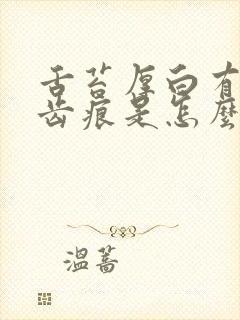 舌苔厚白有
齿痕是怎麼
溫蒿